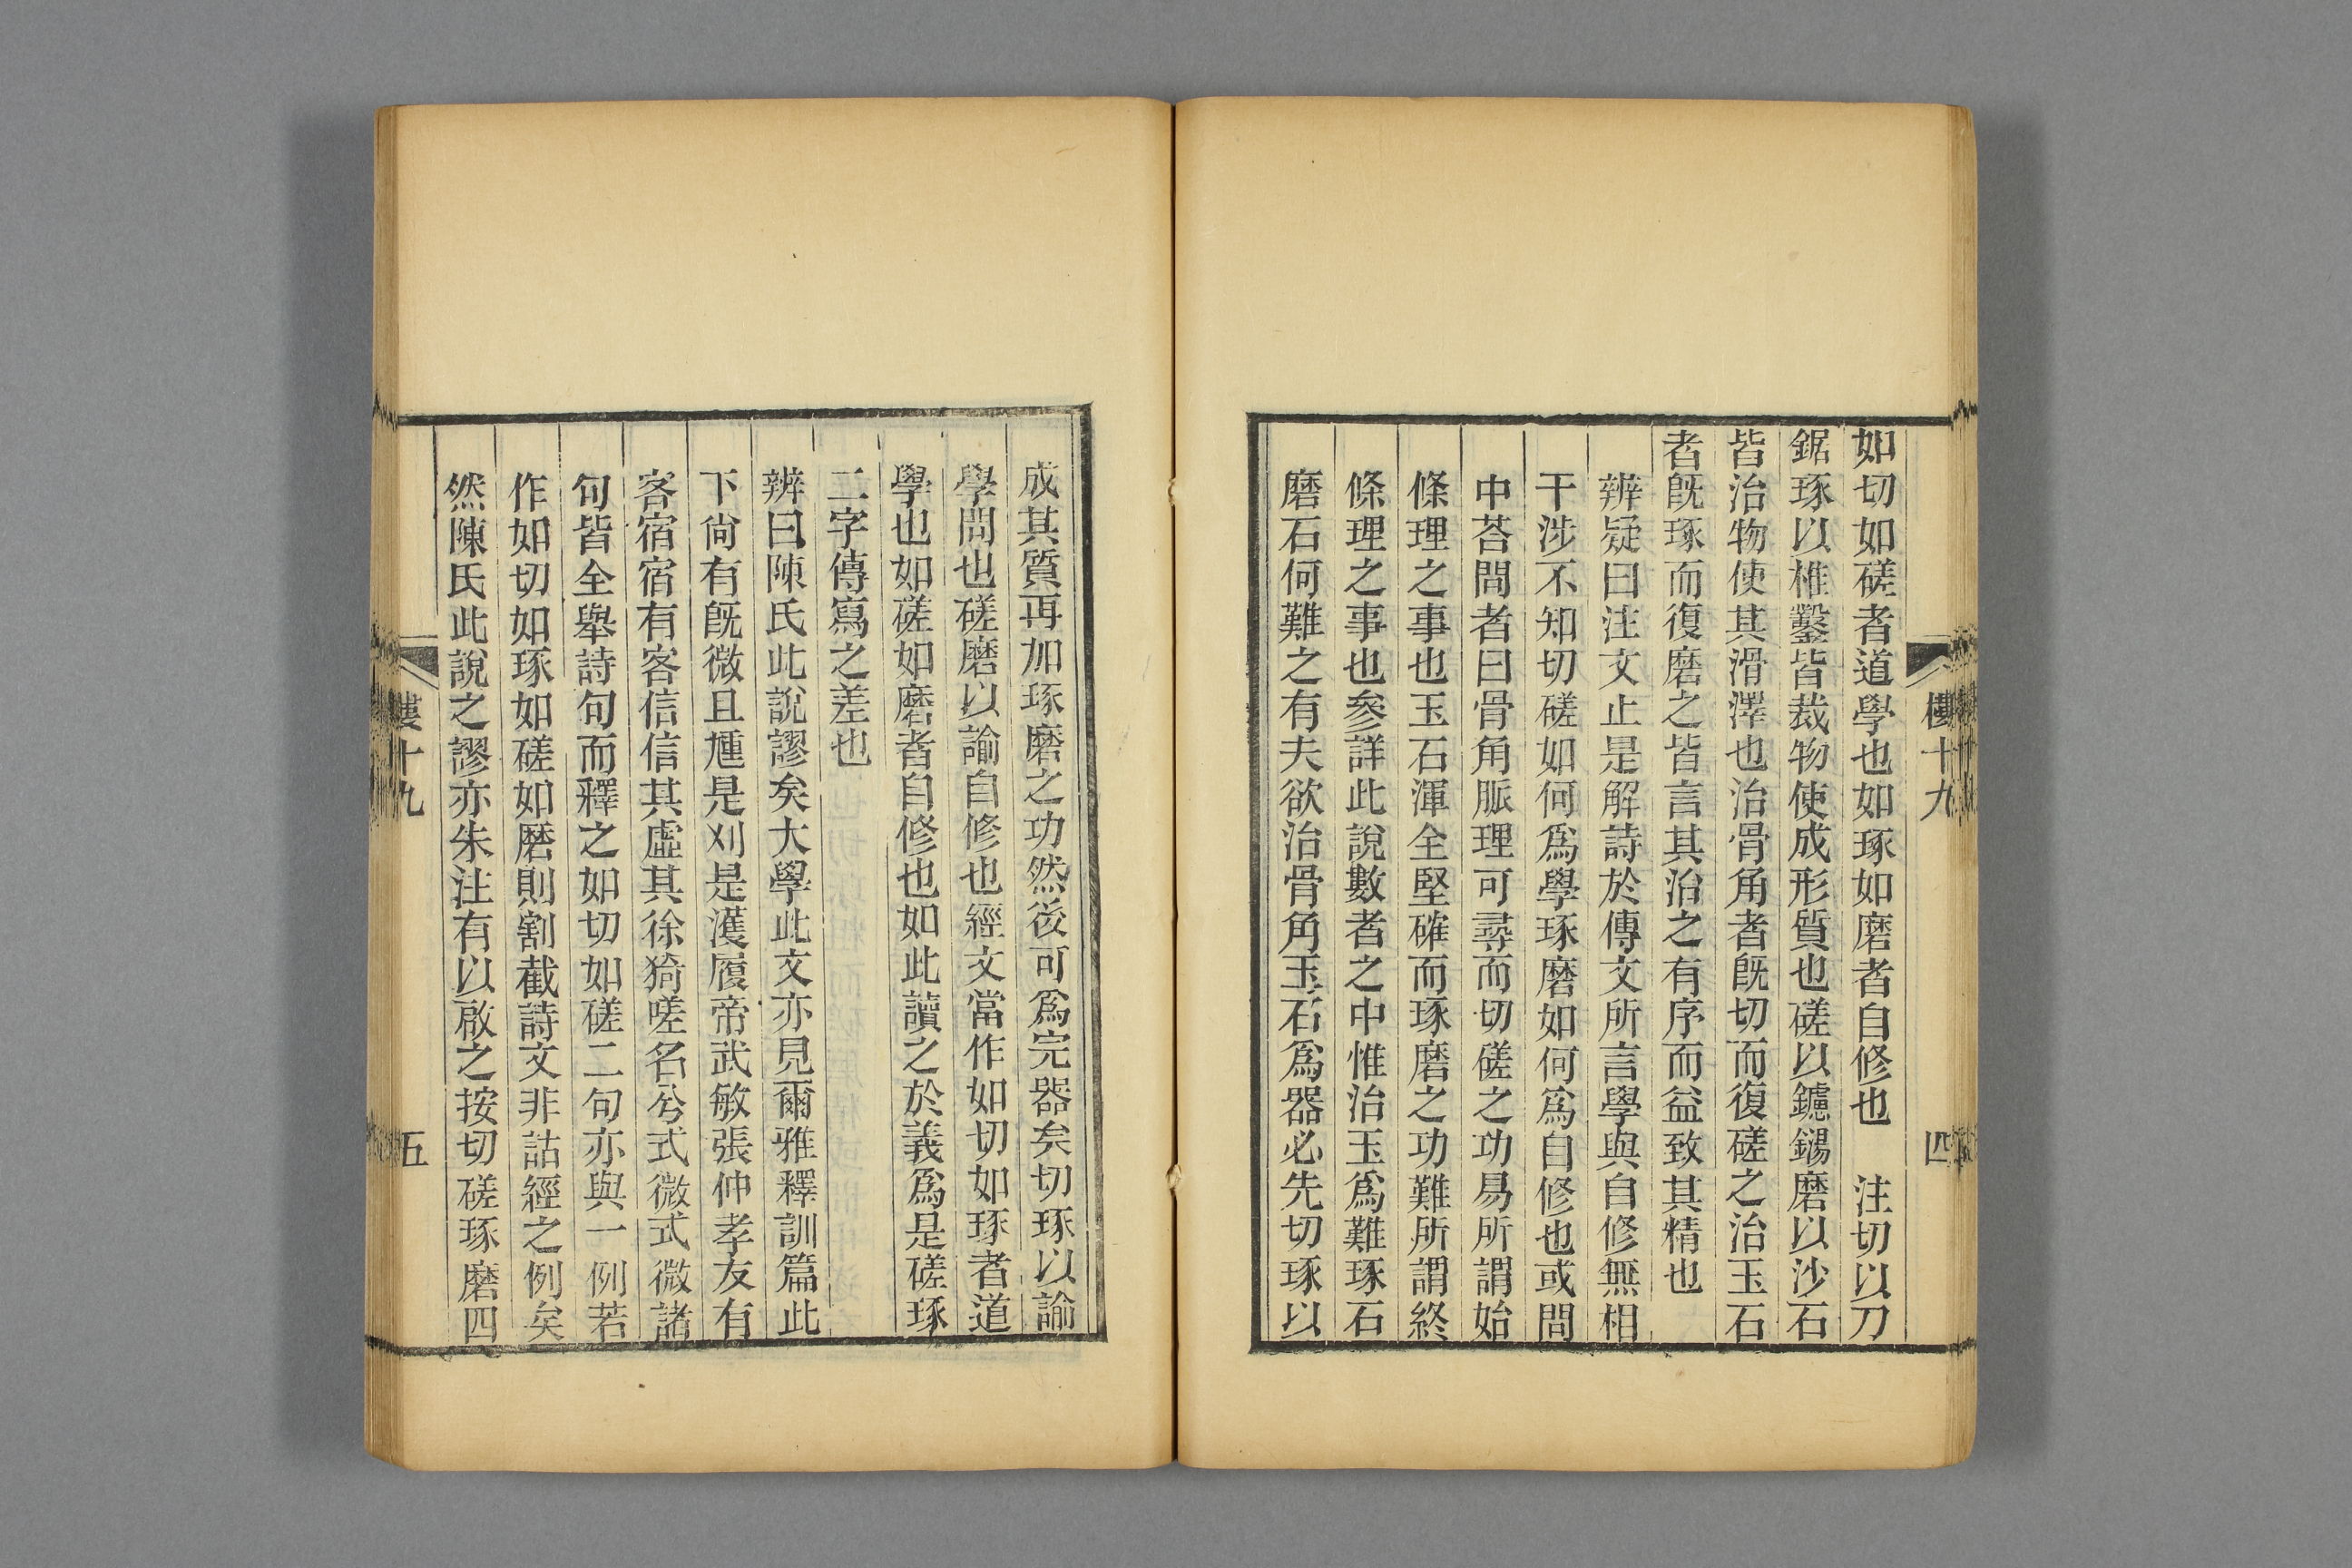 樓十九
四
如切如磋者道學也如琢如磨者自修也　注切以刀
鋸琢以椎鑿皆裁物使成形質也磋以鑢鐋磨以沙石
皆治物使其滑澤也治骨角者旣切而復磋之治玉石
者旣琢而復磨之皆言其治之有序而益致其精也
辨疑曰注文止是解詩於傳文所言學與自修無相
干涉不知切磋如何爲學琢磨如何爲自修也或問
中荅問者曰骨角脈理可尋而切磋之功易所謂始
條理之事也玉石渾全堅確而琢磨之功難所謂終
條理之事也參詳此說數者之中惟治玉爲難琢石
磨石何難之有夫欲治骨角玉石爲器必先切琢以
成其質再加琢磨之功然後可爲完器矣切琢以諭
學問也磋磨以諭自修也經文當作如切如琢者道
學也如磋如磨者自修也如此讀之於義爲是磋琢
二字傳寫之差也
辨曰陳氏此說謬矣大學此文亦見爾雅釋訓篇此
下尙有旣微且尰是刈是濩履帝武敏張仲孝友有
客宿宿有客信信其虛其徐猗嗟名兮式微式微諸
句皆全舉詩句而釋之如切如磋二句亦與一例若
作如切如琢如磋如磨則割截詩文非詁經之例矣
然陳氏此說之謬亦朱注有以啟之按切磋琢磨四
樓十九
五